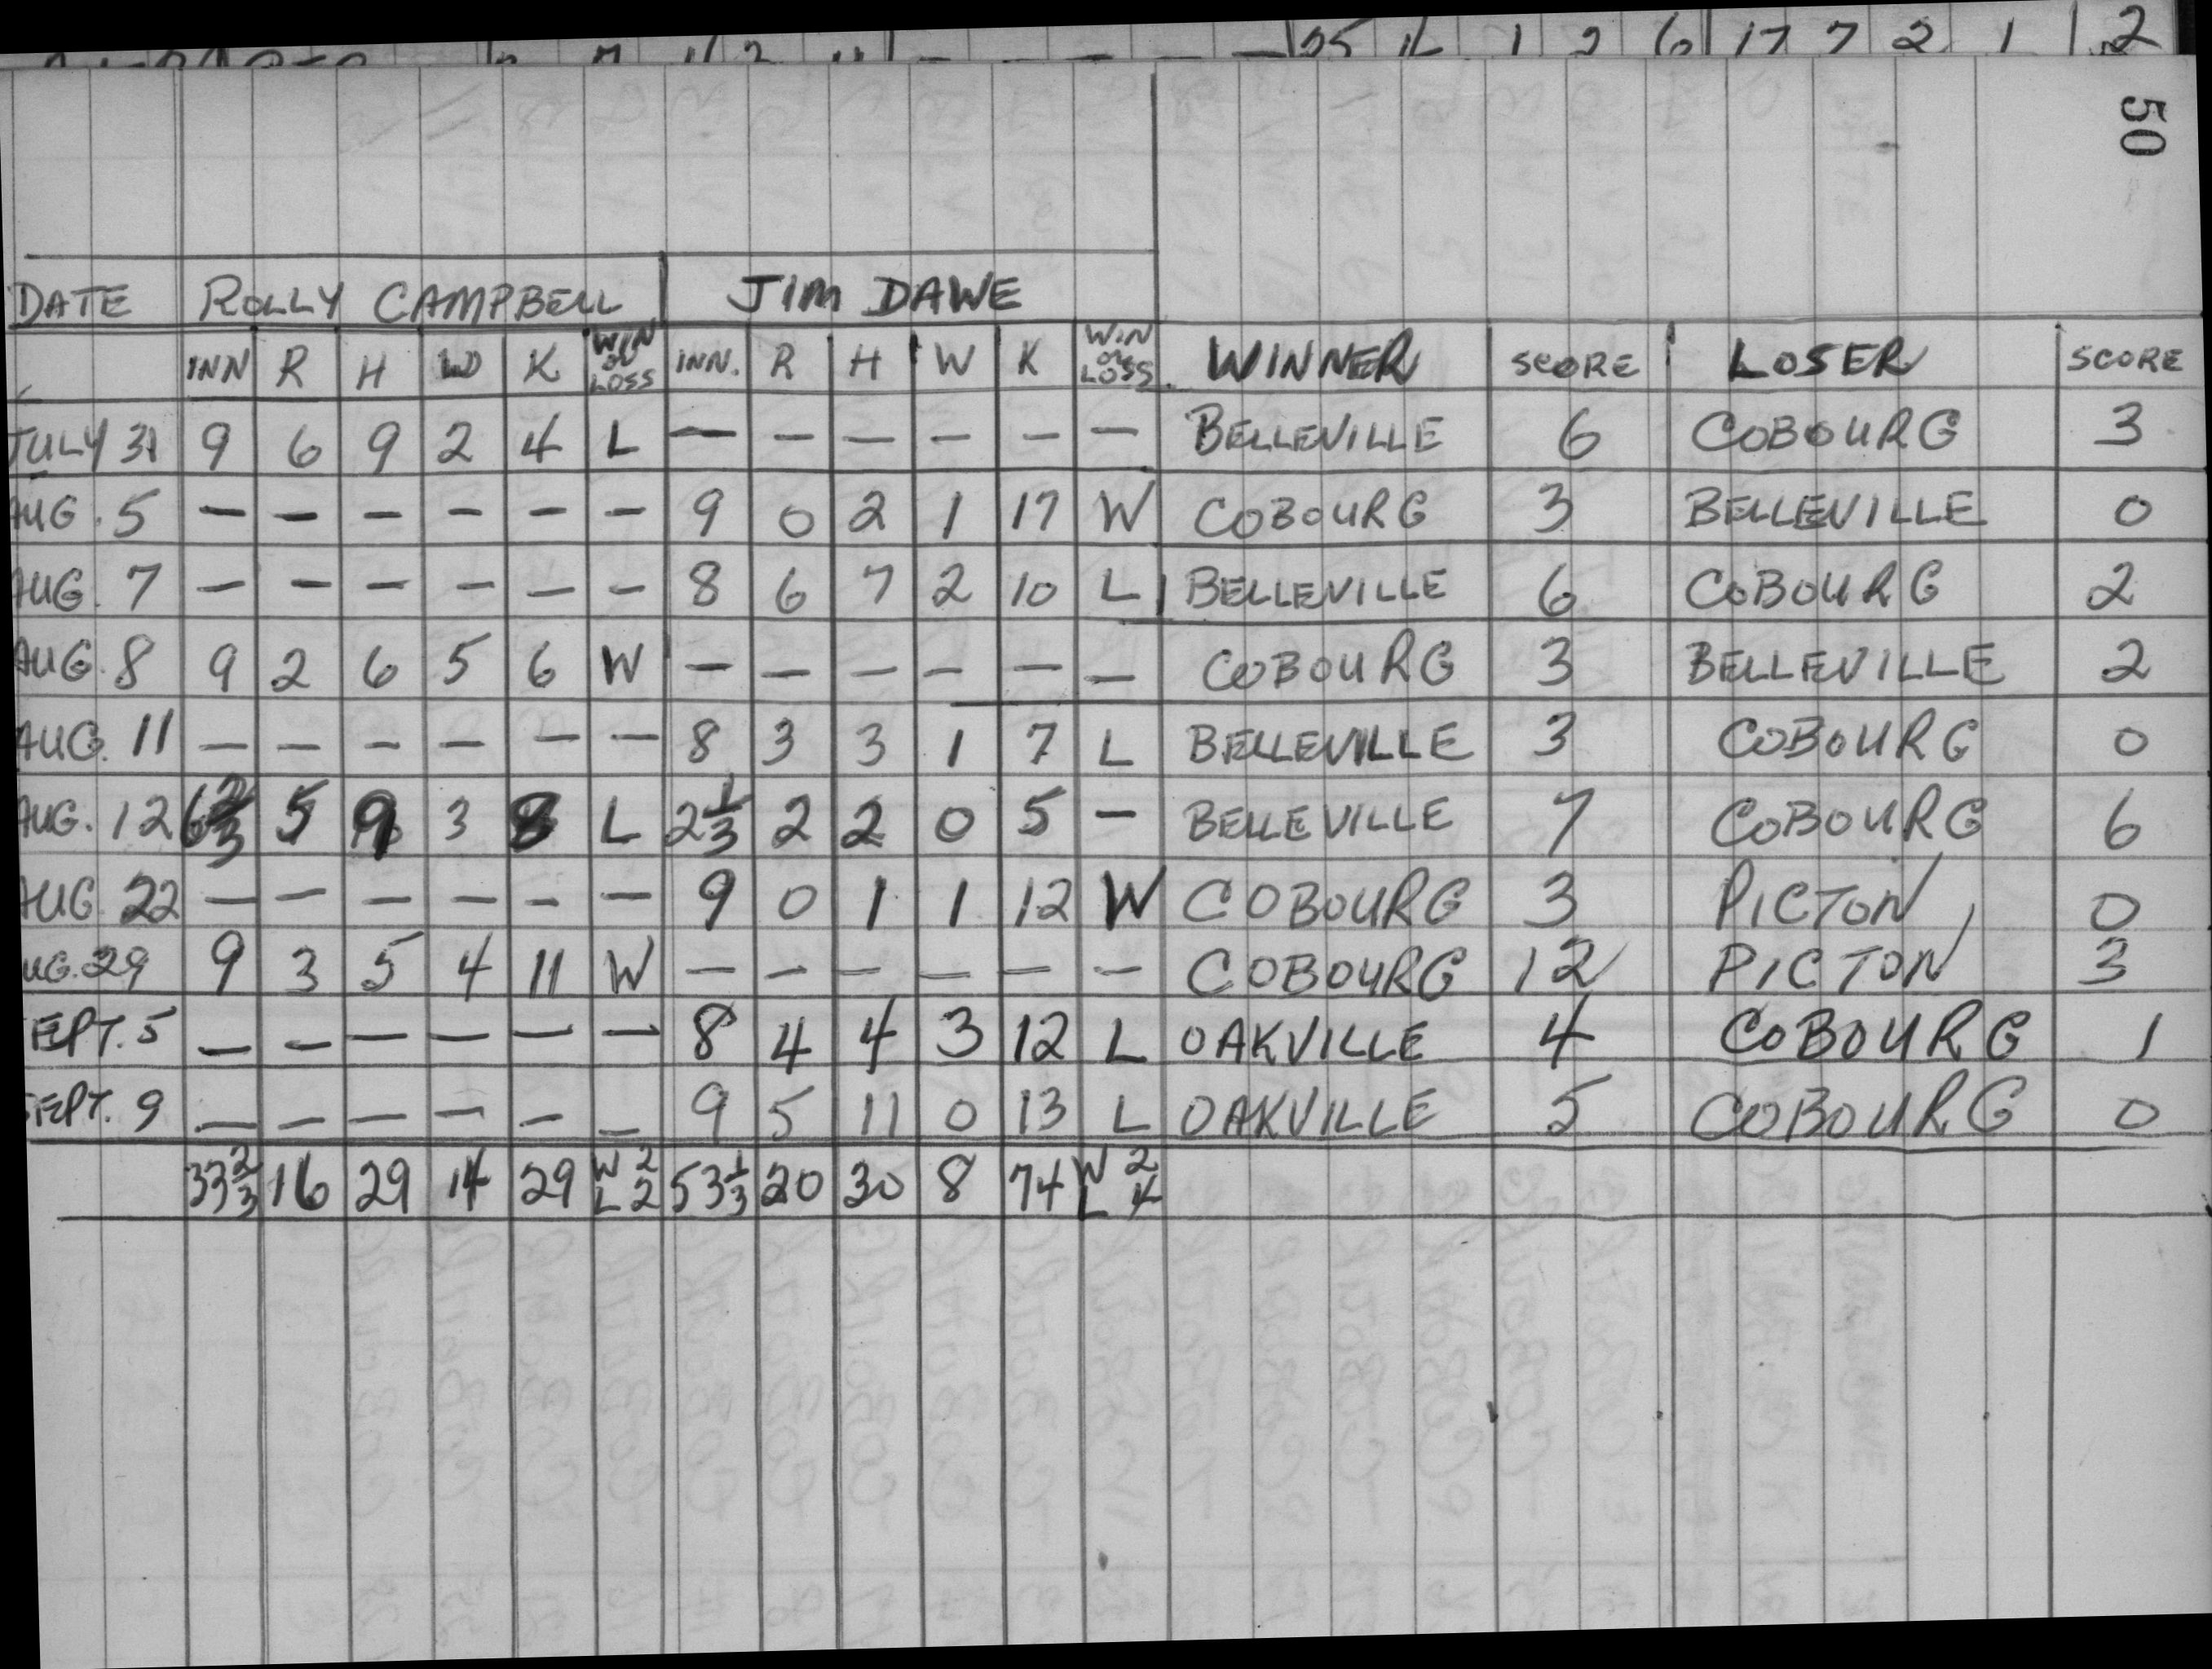 25 1 2 6 17 7 2 1 2
50
DATE ROLLY CAMPBELL JIM DAWE
INN R H W K WIN OR LOSS INN. R H W K WIN OR LOSS WINNER SCORE LOSER SCORE
JULY 31 9 6 9 2 4 L — — — — — — BELLEVILLE 6 COBOURG 3
AUG. 5 — — — — — — 9 0 2 1 17 W COBOURG 3 BELLEVILLE 0
AUG. 7 — — — — — — 8 6 7 2 10 L BELLEVILLE 6 COBOURG 2
AUG. 8 9 2 6 5 6 W — — — — — — COBOURG 3 BELLEVILLE 2
AUG. 11 — — — — — — 8 3 3 1 7 L BELLEVILLE 3 COBOURG 0
AUG. 12 6 2/3 5 9 3 8 L 2 1/3 2 2 0 5 — BELLEVILLE 7 COBOURG 6
AUG. 22 — — — — — — 9 0 1 1 12 W COBOURG 3 PICTON 0
UG. 29 9 3 5 4 11 W — — — — — — COBOURG 12 PICTON 3
EPT. 5 — — — — — — 8 4 4 3 12 L OAKVILLE 4 COBOURG 1
SEPT. 9 — — — — — — 9 5 11 0 13 L OAKVILLE 5 COBOURG 0
33 2/3 16 29 14 29 W 2 L 2 53 1/3 20 30 8 74 W 2 L 4